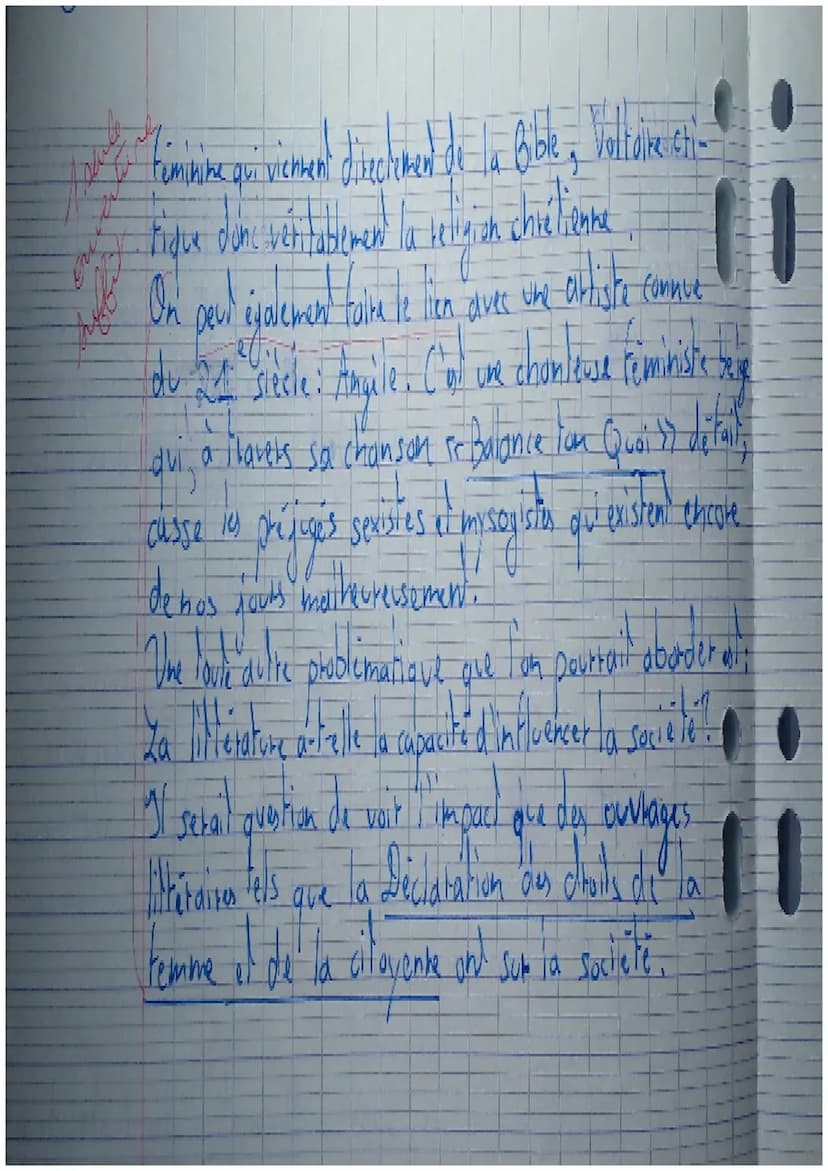 1 seule
ouverture
suffit.
féminine qui viennent directement de la Bible, Voltaire cri-
tique donc véritablement la religion chrétienne.
On peut également faire le lien avec une artiste connue
du 21e siècle : Angèle. C'est une chanteuse féministe belge
qui, à travers sa chanson « Balance ton Quoi » détruit,
casse les préjugés sexistes et mysogistes qui existent encore
de nos jours malheureusement.
Une toute autre problématique que l'on pourrait aborder est :
La littérature a-t-elle la capacité d'influencer la société ?
Il serait question de voir l'impact que des ouvrages
littéraires tels que la Déclaration des droits de la
femme et de la citoyenne ont sur la société.